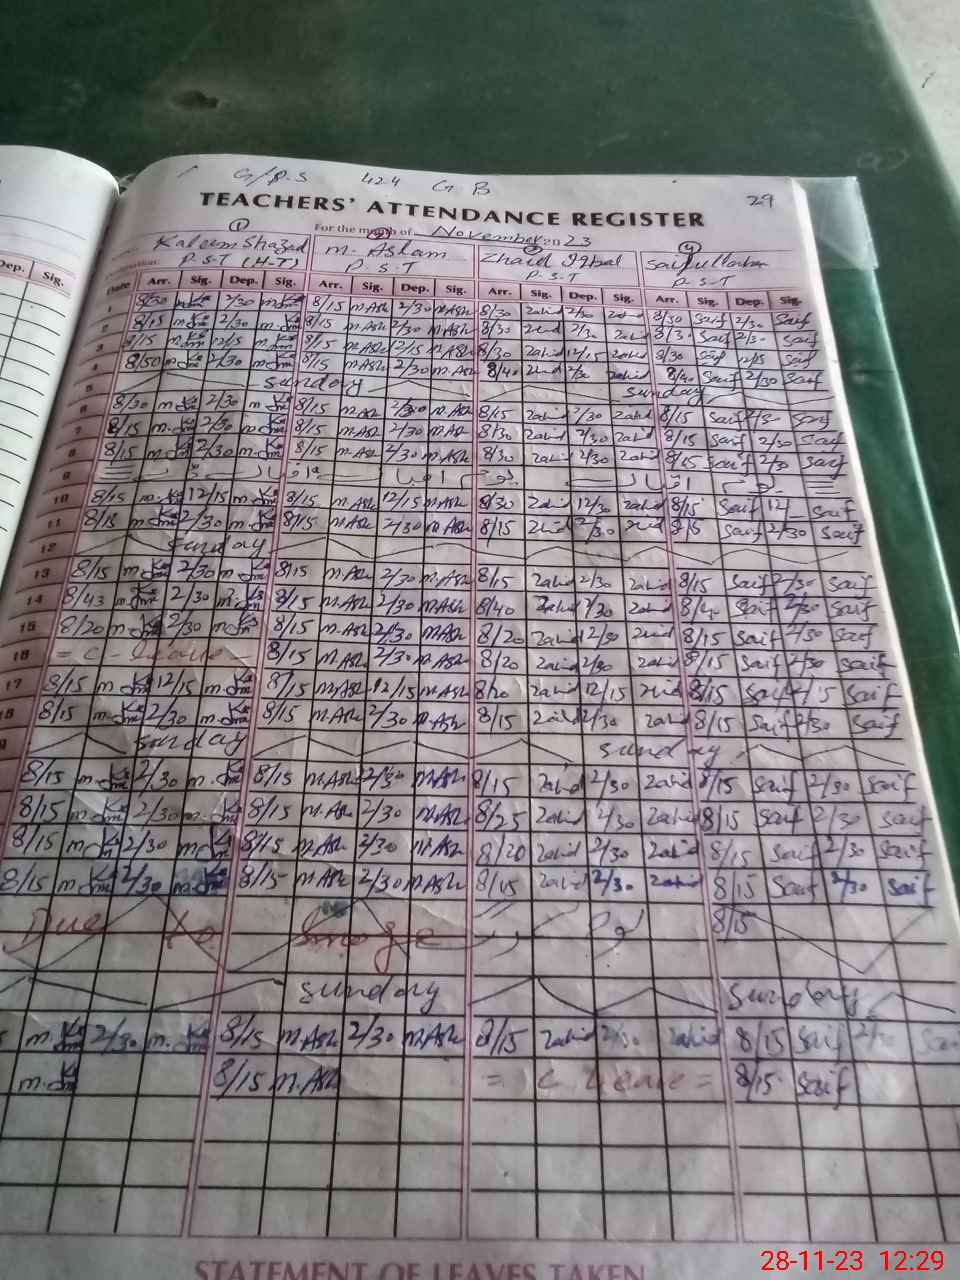 G/P.S 424 G B
29
TEACHERS' ATTENDANCE REGISTER
For the month of November 2023
① ② ③ ④
Kaleem Shazad M. Aslam Zhaid Iqbal Saifullah
P.S.T (H-T) P.S.T P.S.T P.S.T
Dep. Sig.
Date Arr. Sig. Dep. Sig. Arr. Sig. Dep. Sig. Arr. Sig. Dep. Sig. Arr. Sig. Dep. Sig.
1 8/30 2/30 8/15 M.Ash 2/30 M.Ash 8/30 Zahid 2/30 Zahid 8/30 Saif 2/30 Saif
2 8/15 2/30 8/15 M.Ash 2/30 M.Ash 8/30 Zahid 2/30 Zahid 8/30 Saif 2/30 Saif
3 8/15 12/15 8/15 M.Ash 12/15 M.Ash 8/30 Zahid 12/15 Zahid 8/30 Saif 12/15 Saif
4 8/50 2/30 8/15 M.Ash 2/30 M.Ash 8/40 Zahid 2/30 Zahid 8/40 Saif 2/30 Saif
5 Sunday Sunday
6 8/30 2/30 8/15 M.Ash 2/30 M.Ash 8/15 Zahid 2/30 Zahid 8/15 Saif 2/30 Saif
7 8/15 2/30 8/15 M.Ash 2/30 M.Ash 8/30 Zahid 2/30 Zahid 8/15 Saif 2/30 Saif
8 8/15 2/30 8/15 M.Ash 2/30 M.Ash 8/30 Zahid 2/30 Zahid 8/15 Saif 2/30 Saif
9
10 8/15 12/15 8/15 M.Ash 12/15 M.Ash 8/20 Zahid 12/30 Zahid 8/15 Saif 12/ Saif
11 8/15 2/30 8/15 M.Ash 2/30 M.Ash 8/15 Zahid 2/30 Zahid 8/15 Saif 2/30 Saif
12 Sunday
13 8/15 2/30 8/15 M.Ash 2/30 M.Ash 8/15 Zahid 2/30 Zahid 8/15 Saif 2/30 Saif
14 8/43 2/30 8/15 M.Ash 2/30 M.Ash 8/40 Zahid 2/30 Zahid 8/40 Saif 2/30 Saif
15 8/20 2/30 8/15 M.Ash 2/30 M.Ash 8/20 Zahid 2/30 Zahid 8/15 Saif 2/30 Saif
16 = C - leave - 8/15 M.Ash 2/30 M.Ash 8/20 Zahid 2/30 Zahid 8/15 Saif 2/30 Saif
17 8/15 12/15 8/15 M.Ash 12/15 M.Ash 8/20 Zahid 12/15 Zahid 8/15 Saif Saif
18 8/15 2/30 8/15 M.Ash 2/30 M.Ash 8/15 Zahid 2/30 Zahid 8/15 Saif 2/30 Saif
Sunday Sunday
8/15 2/30 8/15 M.Ash 2/30 M.Ash 8/15 Zahid 2/30 Zahid 8/15 Saif 2/30 Saif
8/15 2/30 8/15 M.Ash 2/30 M.Ash 8/25 Zahid 2/30 Zahid 8/15 Saif 2/30 Saif
8/15 2/30 8/15 M.Ash 2/30 M.Ash 8/20 Zahid 2/30 Zahid 8/15 Saif 2/30 Saif
8/15 2/30 8/15 M.Ash 2/30 M.Ash 8/15 Zahid 2/30 Zahid 8/15 Saif 2/30 Saif
Due to Smoge 8/15
Sunday Sunday
2/30 8/15 M.Ash 2/30 M.Ash 8/15 Zahid 2/30 Zahid 8/15 Saif 2/30 Sai
8/15 M.Ash = C leave = 8/15 Saif
STATEMENT OF LEAVES TAKEN
28-11-23 12:29